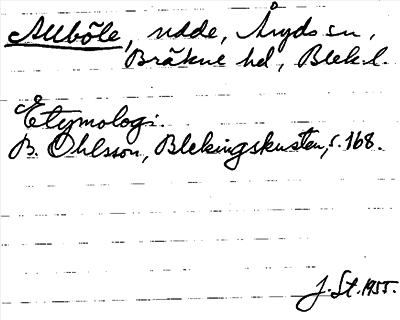 Allböle, udde, Åryds sn,
Bräkne hd, Blek. l.
Etymologi:
B. Ohlsson, Blekingskusten, s. 168.
J. St. 1955.